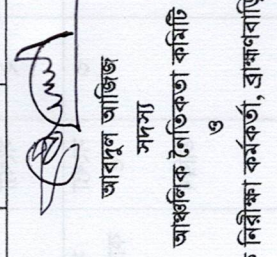 আবদুল আজিজ
সদস্য
আঞ্চলিক নৈতিকতা কমিটি
ও
নিরীক্ষা কর্মকর্তা, ব্রাহ্মণবাড়ি